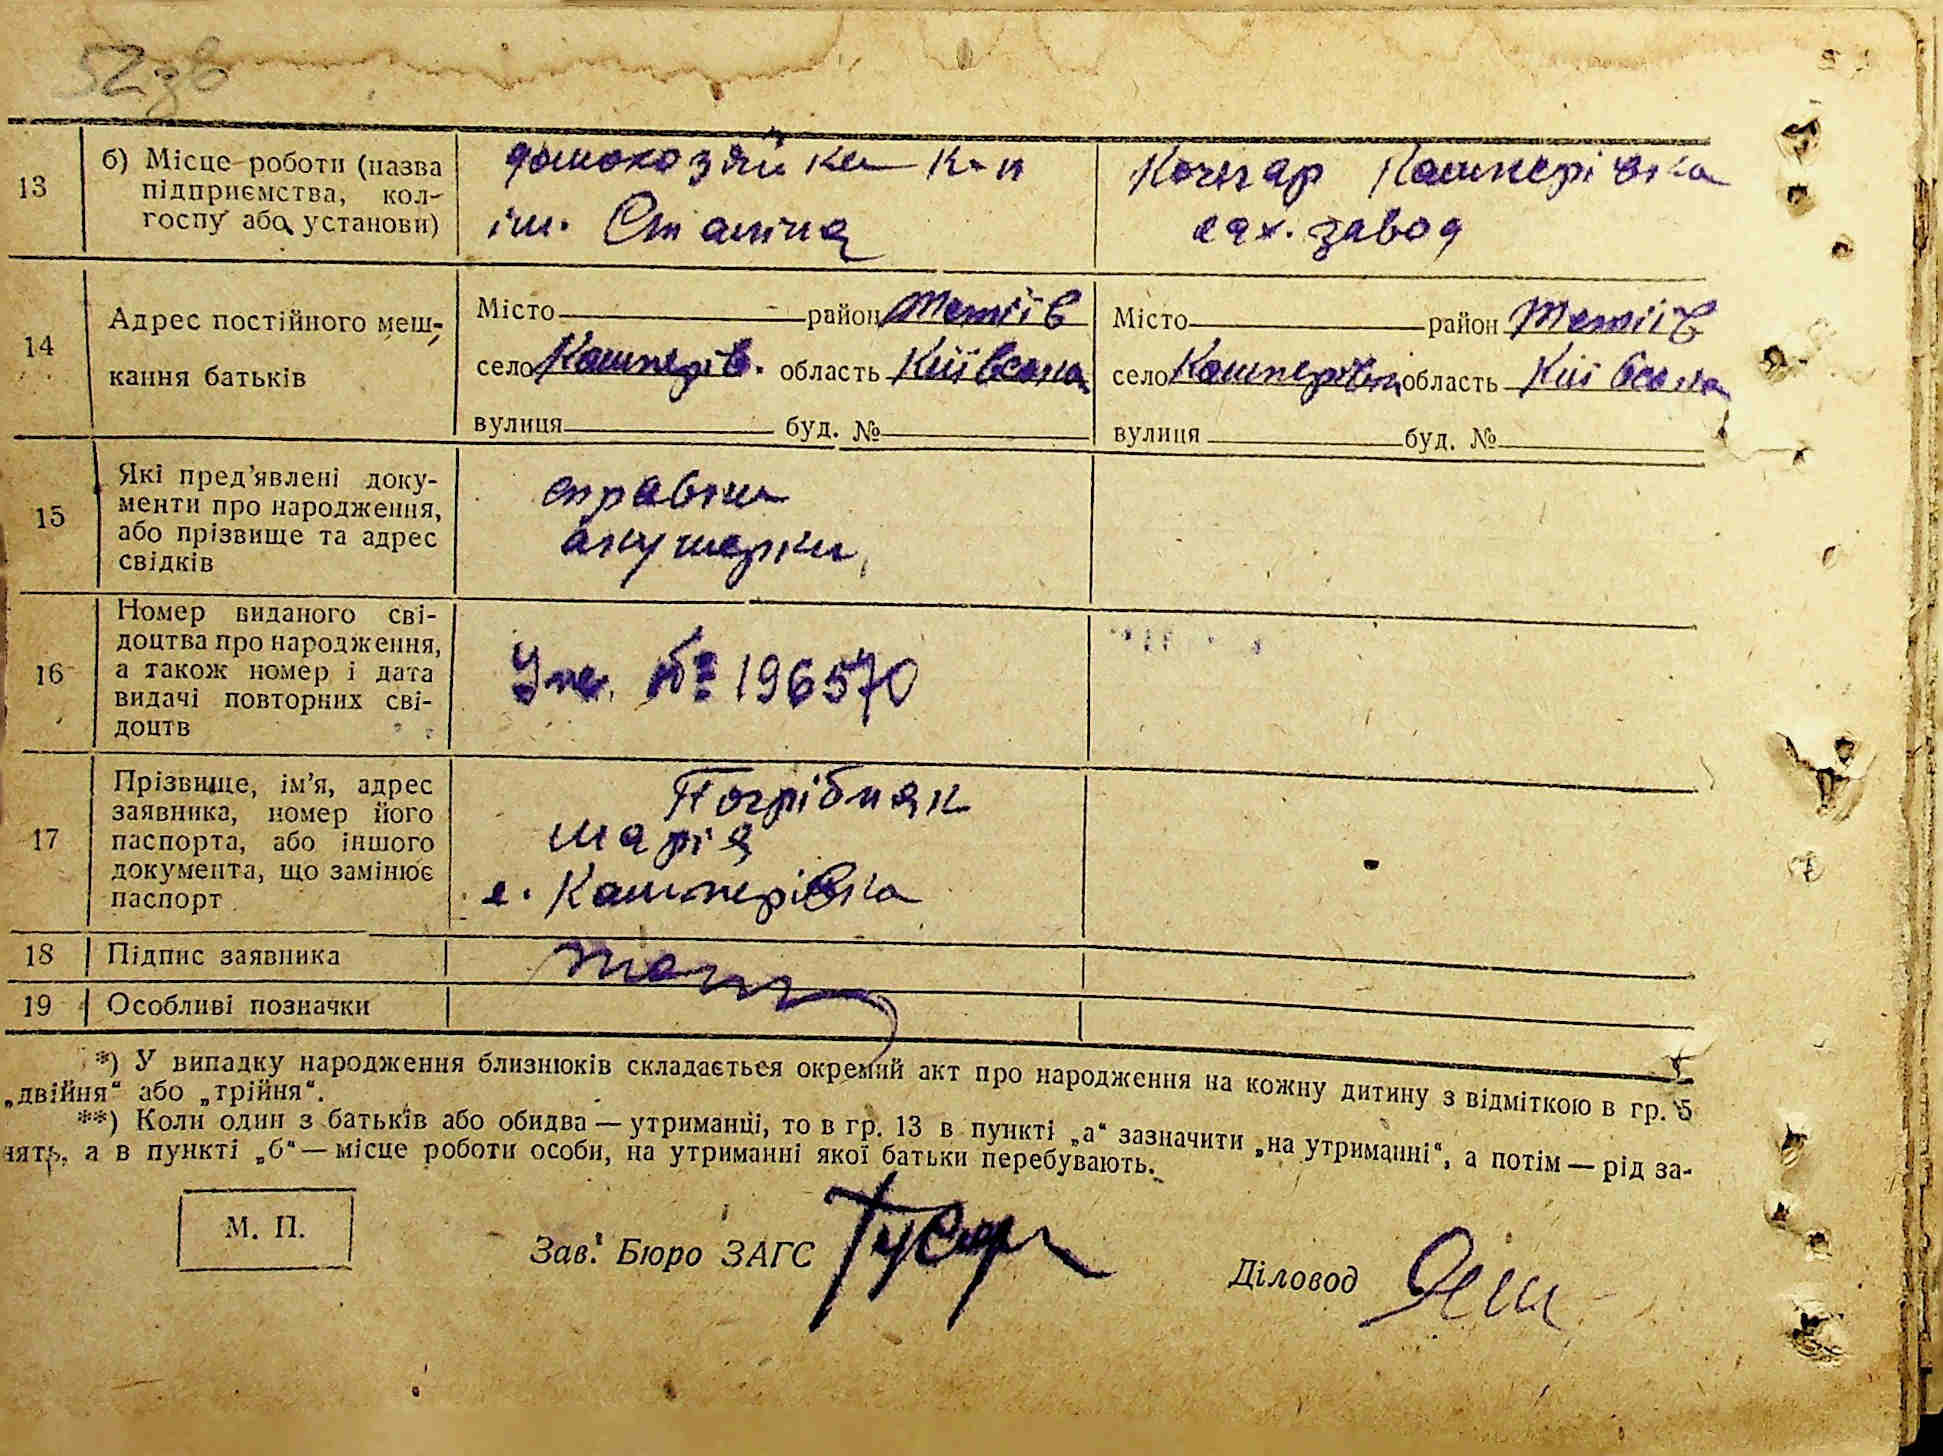 52 зв
13 б) Місце роботи (назва підприємства, колгоспу або установи)
домохозяйка к-п
ім. Сталіна
Кочегар Кашперівка
сах. завод
14 Адрес постійного мешкання батьків
Місто район Тетіїв
село Кашперів. область Київська
вулиця буд. №
Місто район Тетіїв
село Кашперівка область Київська
вулиця буд. №
15 Які пред’явлені документи про народження, або прізвище та адрес свідків
справки
акушерки
16 Номер виданого свідоцтва про народження, а також номер і дата видачі повторних свідоцтв
№ 196570
17 Прізвище, ім’я, адрес заявника, номер його паспорта, або іншого документа, що замінює паспорт
Погрібняк
Марія
с. Кашперівка
18 Підпис заявника
19 Особливі позначки
*) У випадку народження близнюків складається окремий акт про народження на кожну дитину з відміткою в гр. 5
„двійня“ або „трійня“.
**) Коли один з батьків або обидва — утриманці, то в гр. 13 в пункті „а“ зазначити „на утриманні“, а потім — рід за-
нять, а в пункті „б“ — місце роботи особи, на утриманні якої батьки перебувають.
М. П.
Зав. Бюро ЗАГС
Діловод